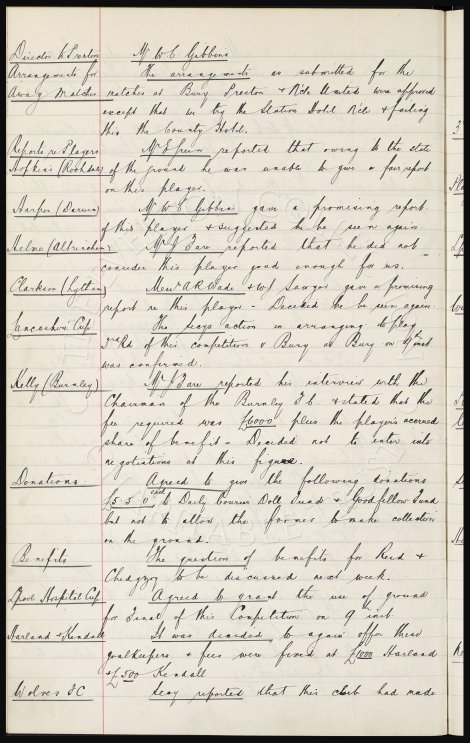 Director to Preston Mr W C Gibbins
Arrangements for The arrangements as submitted for the
Away Matches matches at Bury Preston & N'cle United were approved
except that we try the Station Hotel N'cle & failing
this the County Hotel.
Reports re Players Mr E Green reported that owing to the state
Hopkins (Rochdale) of the ground he was unable to give a fair report
on this player.
Harper (Darwen) Mr W C Gibbins gave a promising report
of this player & suggested he be seen again.
Milne (Altrincham) Mr J Fare reported that he did not
consider this player good enough for us.
Clarkson (Lytham) Messrs A R Wade & W Sawyer gave a promising
report re this player - Decided he be seen again.
Lancashire Cup The secys action in arranging to play
3rd Rd of this competition v Bury at Bury on 9th inst
was confirmed.
Kelly (Burnley) Mr J Fare reported his interview with the
Chairman of the Burnley F.C. & stated that the
fee required was £6000 plus the players accrued
share of benefit - Decided not to enter into
negotiations at this figure.
Donations. Agreed to give the following donations
£5 5 0 each to Daily Courier Doll Fund & Goodfellow Fund
but not to allow the former to make collection
on the ground.
Benefits The question of benefits for Reid &
Chedgzoy to be discussed next week.
L'pool Hospital Cup Agreed to grant the use of ground
for Final of this Competition on 9th inst
Harland & Kendall It was decided to again offer these
goalkeepers & fees were fixed at £1000 Harland
& £500 Kendall
Wolves F C Secy reported that this club had made